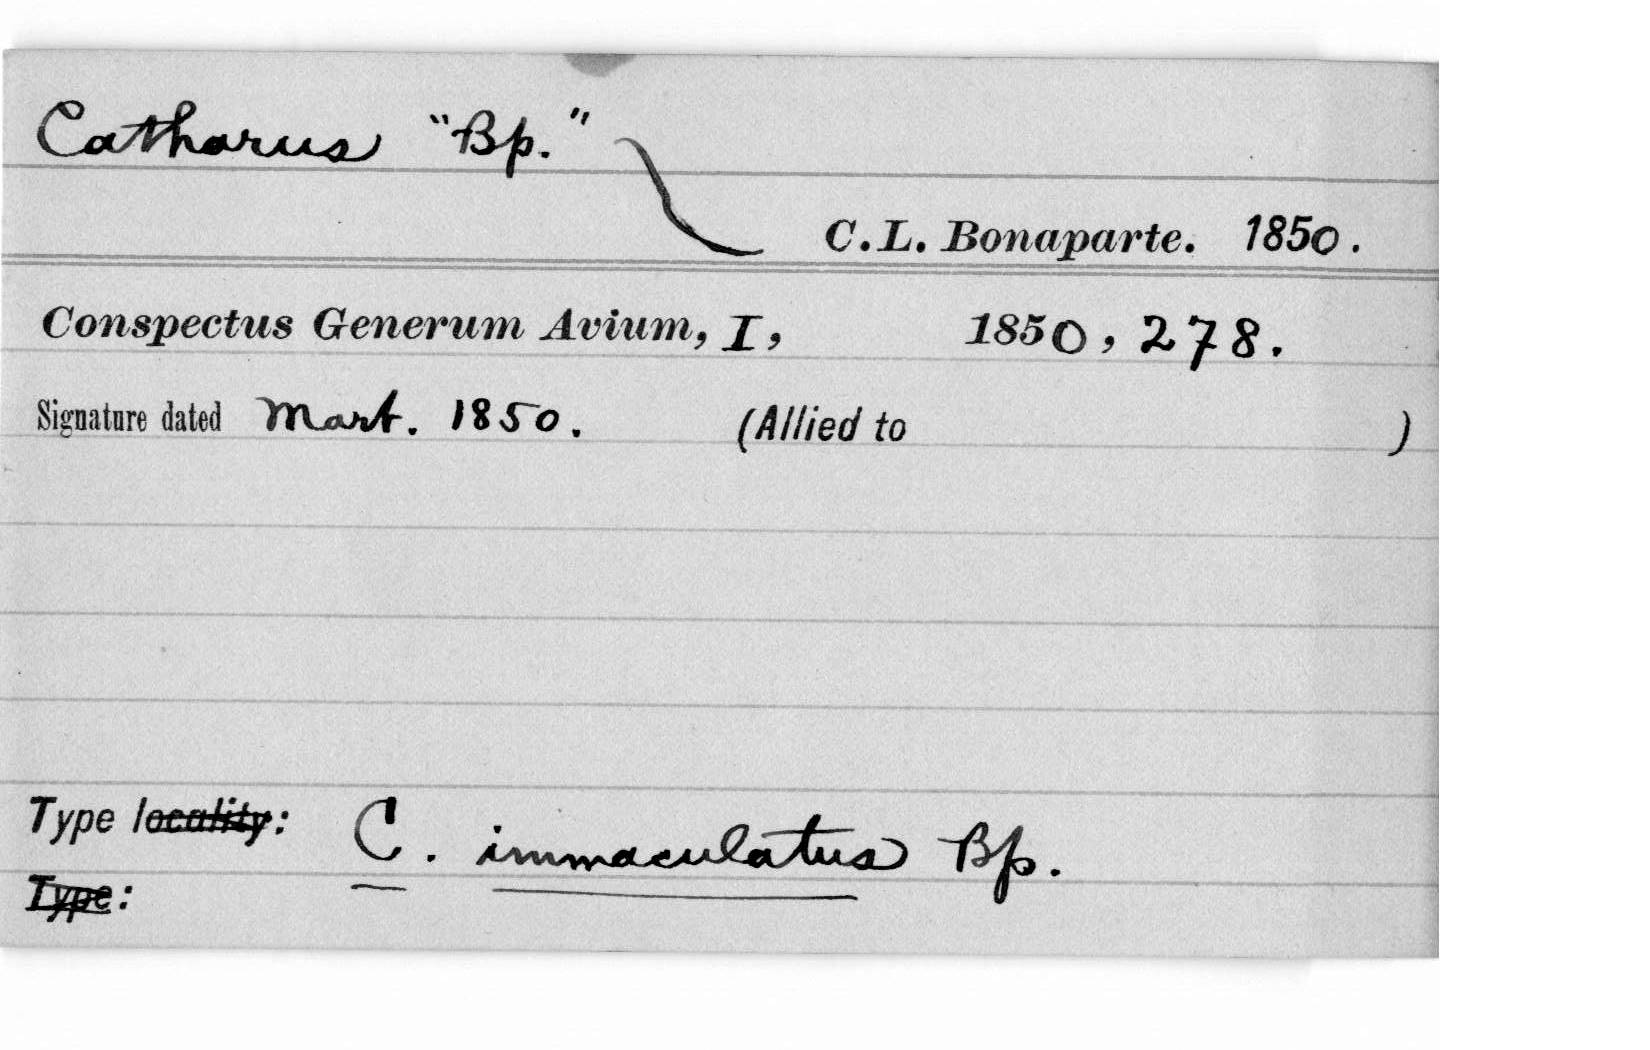 Catharus "Bp."
C.L. Bonaparte. 1850.
Conspectus Generum Avium, I, 1850, 278.
Signature dated Mart. 1850. (Allied to )
Type locality: C. immaculatus Bp.
Type: